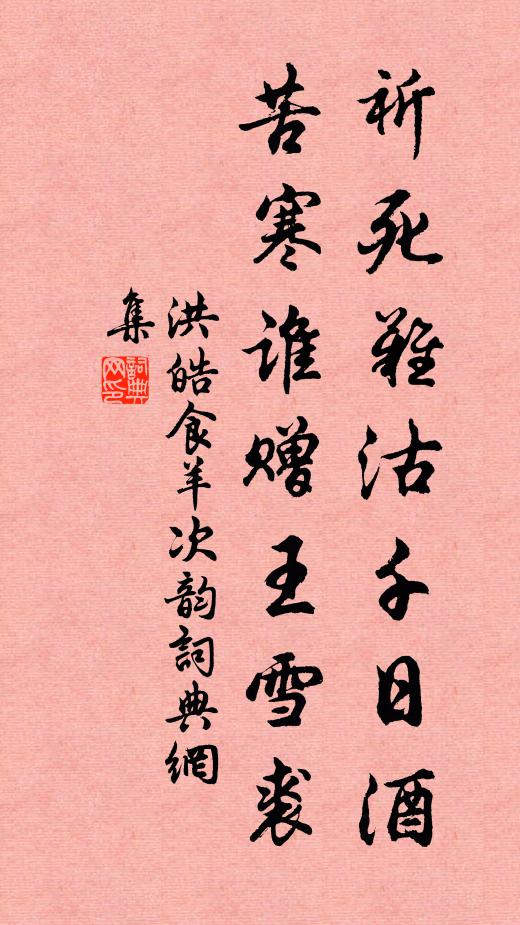 祈死難沽千日酒
苦寒誰贈王雪裘
洪皓食羊次韵詞典網
集
詞典網印